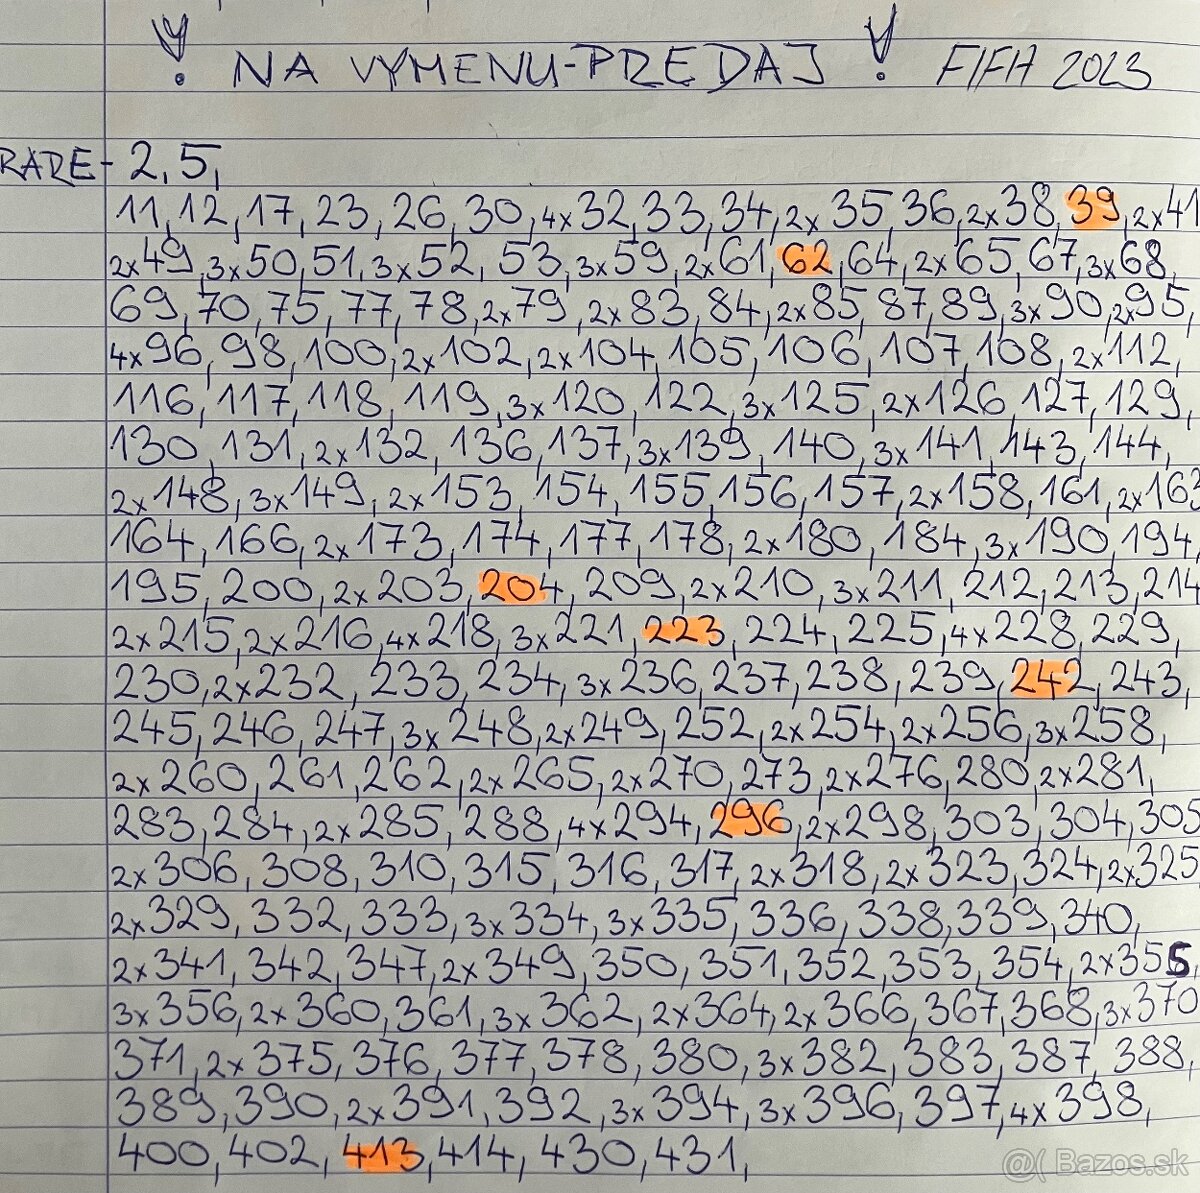 ! NA VYMENU-PREDAJ ! FIFA 2023
RARE- 2,5,
11,12,17,23,26,30,4x32,33,34,2x35,36,2x38,39,2x41
2x49,3x50,51,3x52,53,3x59,2x61,62,64,2x65,67,3x68,
69,70,75,77,78,2x79,2x83,84,2x85,87,89,3x90,2x95,
4x96,98,100,2x102,2x104,105,106,107,108,2x112,
116,117,118,119,3x120,122,3x125,2x126,127,129,
130,131,2x132,136,137,3x139,140,3x141,143,144,
2x148,3x149,2x153,154,155,156,157,2x158,161,2x163
164,166,2x173,174,177,178,2x180,184,3x190,194,
195,200,2x203,204,209,2x210,3x211,212,213,214
2x215,2x216,4x218,3x221,223,224,225,4x228,229,
230,2x232,233,234,3x236,237,238,239,242,243,
245,246,247,3x248,2x249,252,2x254,2x256,3x258,
2x260,261,262,2x265,2x270,273,2x276,280,2x281,
283,284,2x285,288,4x294,296,2x298,303,304,305
2x306,308,310,315,316,317,2x318,2x323,324,2x325
2x329,332,333,3x334,3x335,336,338,339,340,
2x341,342,347,2x349,350,351,352,353,354,2x355,
3x356,2x360,361,3x362,2x364,2x366,367,368,3x370
371,2x375,376,377,378,380,3x382,383,387,388,
389,390,2x391,392,3x394,3x396,397,4x398,
400,402,413,414,430,431,
@( Bazos.sk